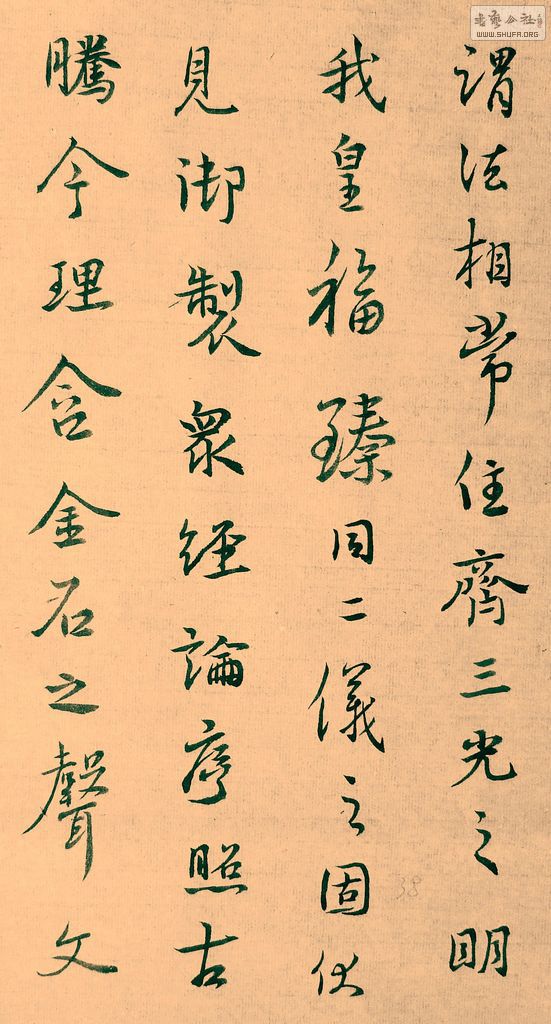 謂法相常住齊三光之明
我皇福臻同二儀之固伏
見御製眾經論序照古
騰今理含金石之聲文
書藝公社
WWW.SHUFA.ORG
38